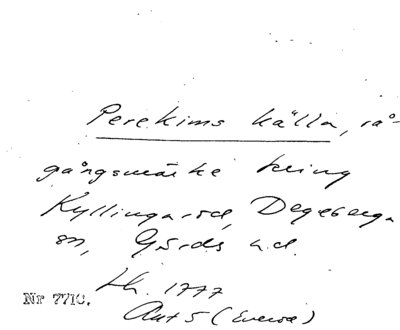 Perekims källa, rå-
gångsmärke kring
Kyllingaröd, Degeberga
sn, Gärds hd.
Lh. 1777
Nr 7710.
Akt 5 (Everöd)